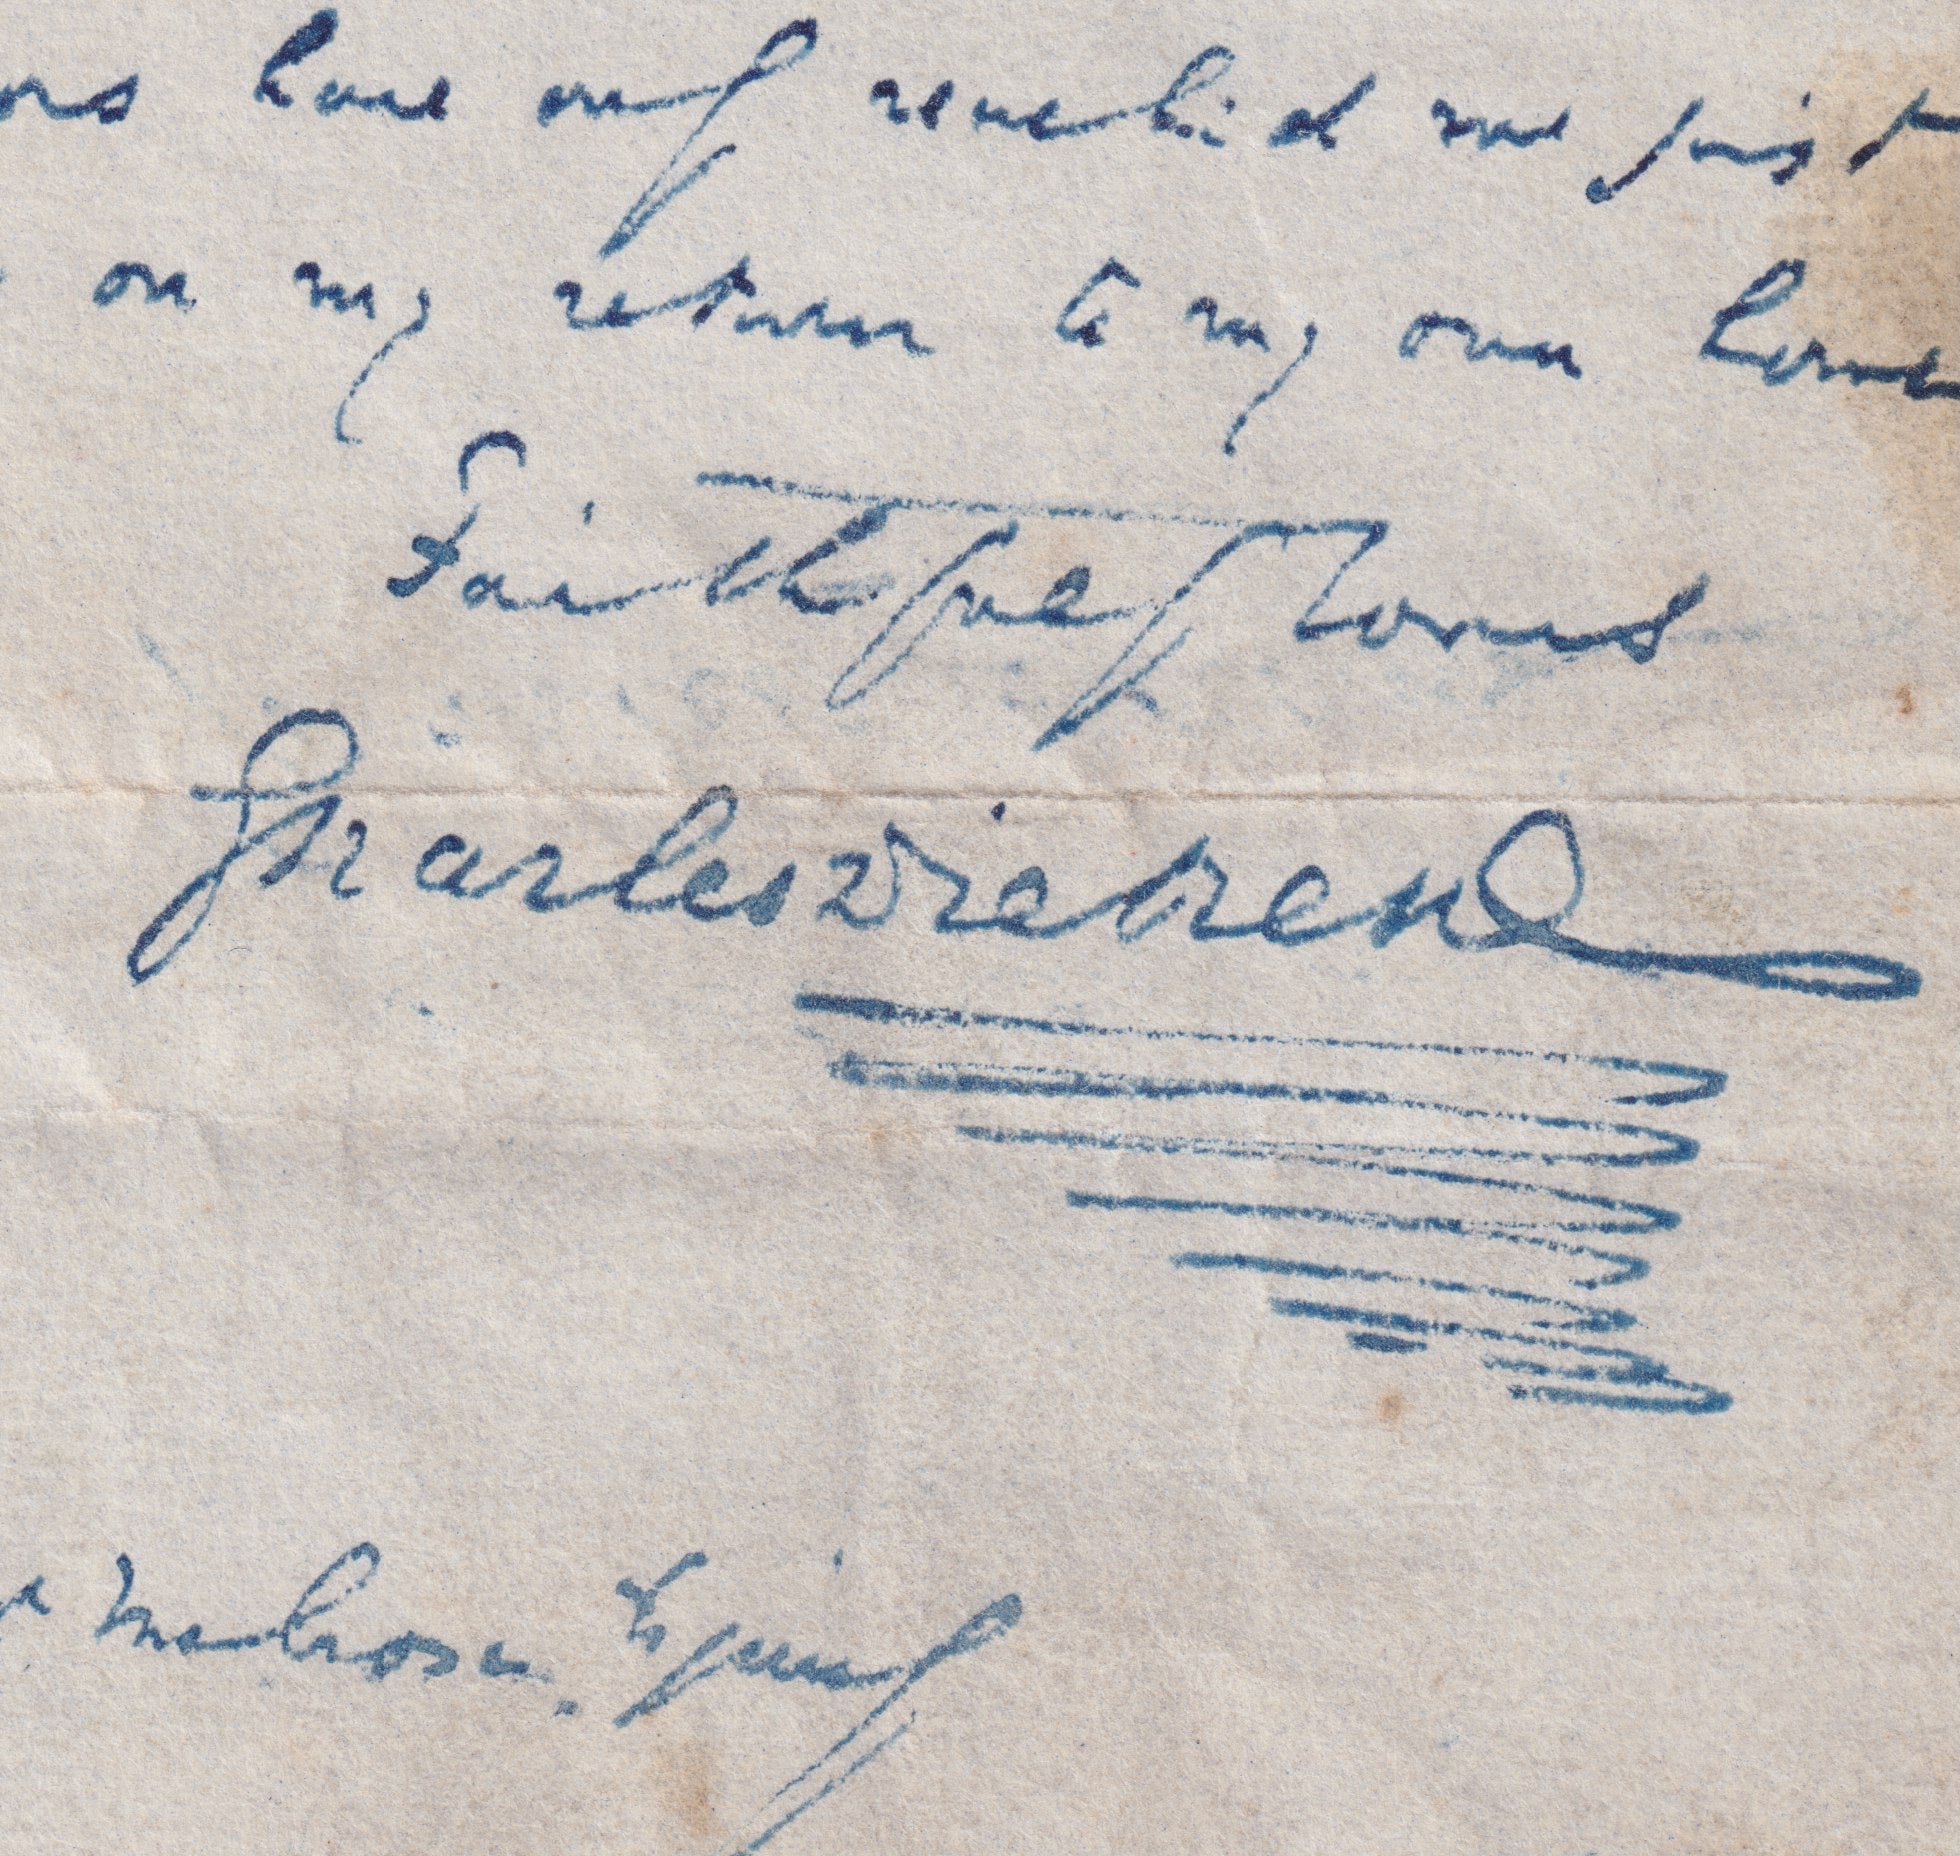 have only reached me just
on my return to my own home
Faithfully Yours
Charles Dickens